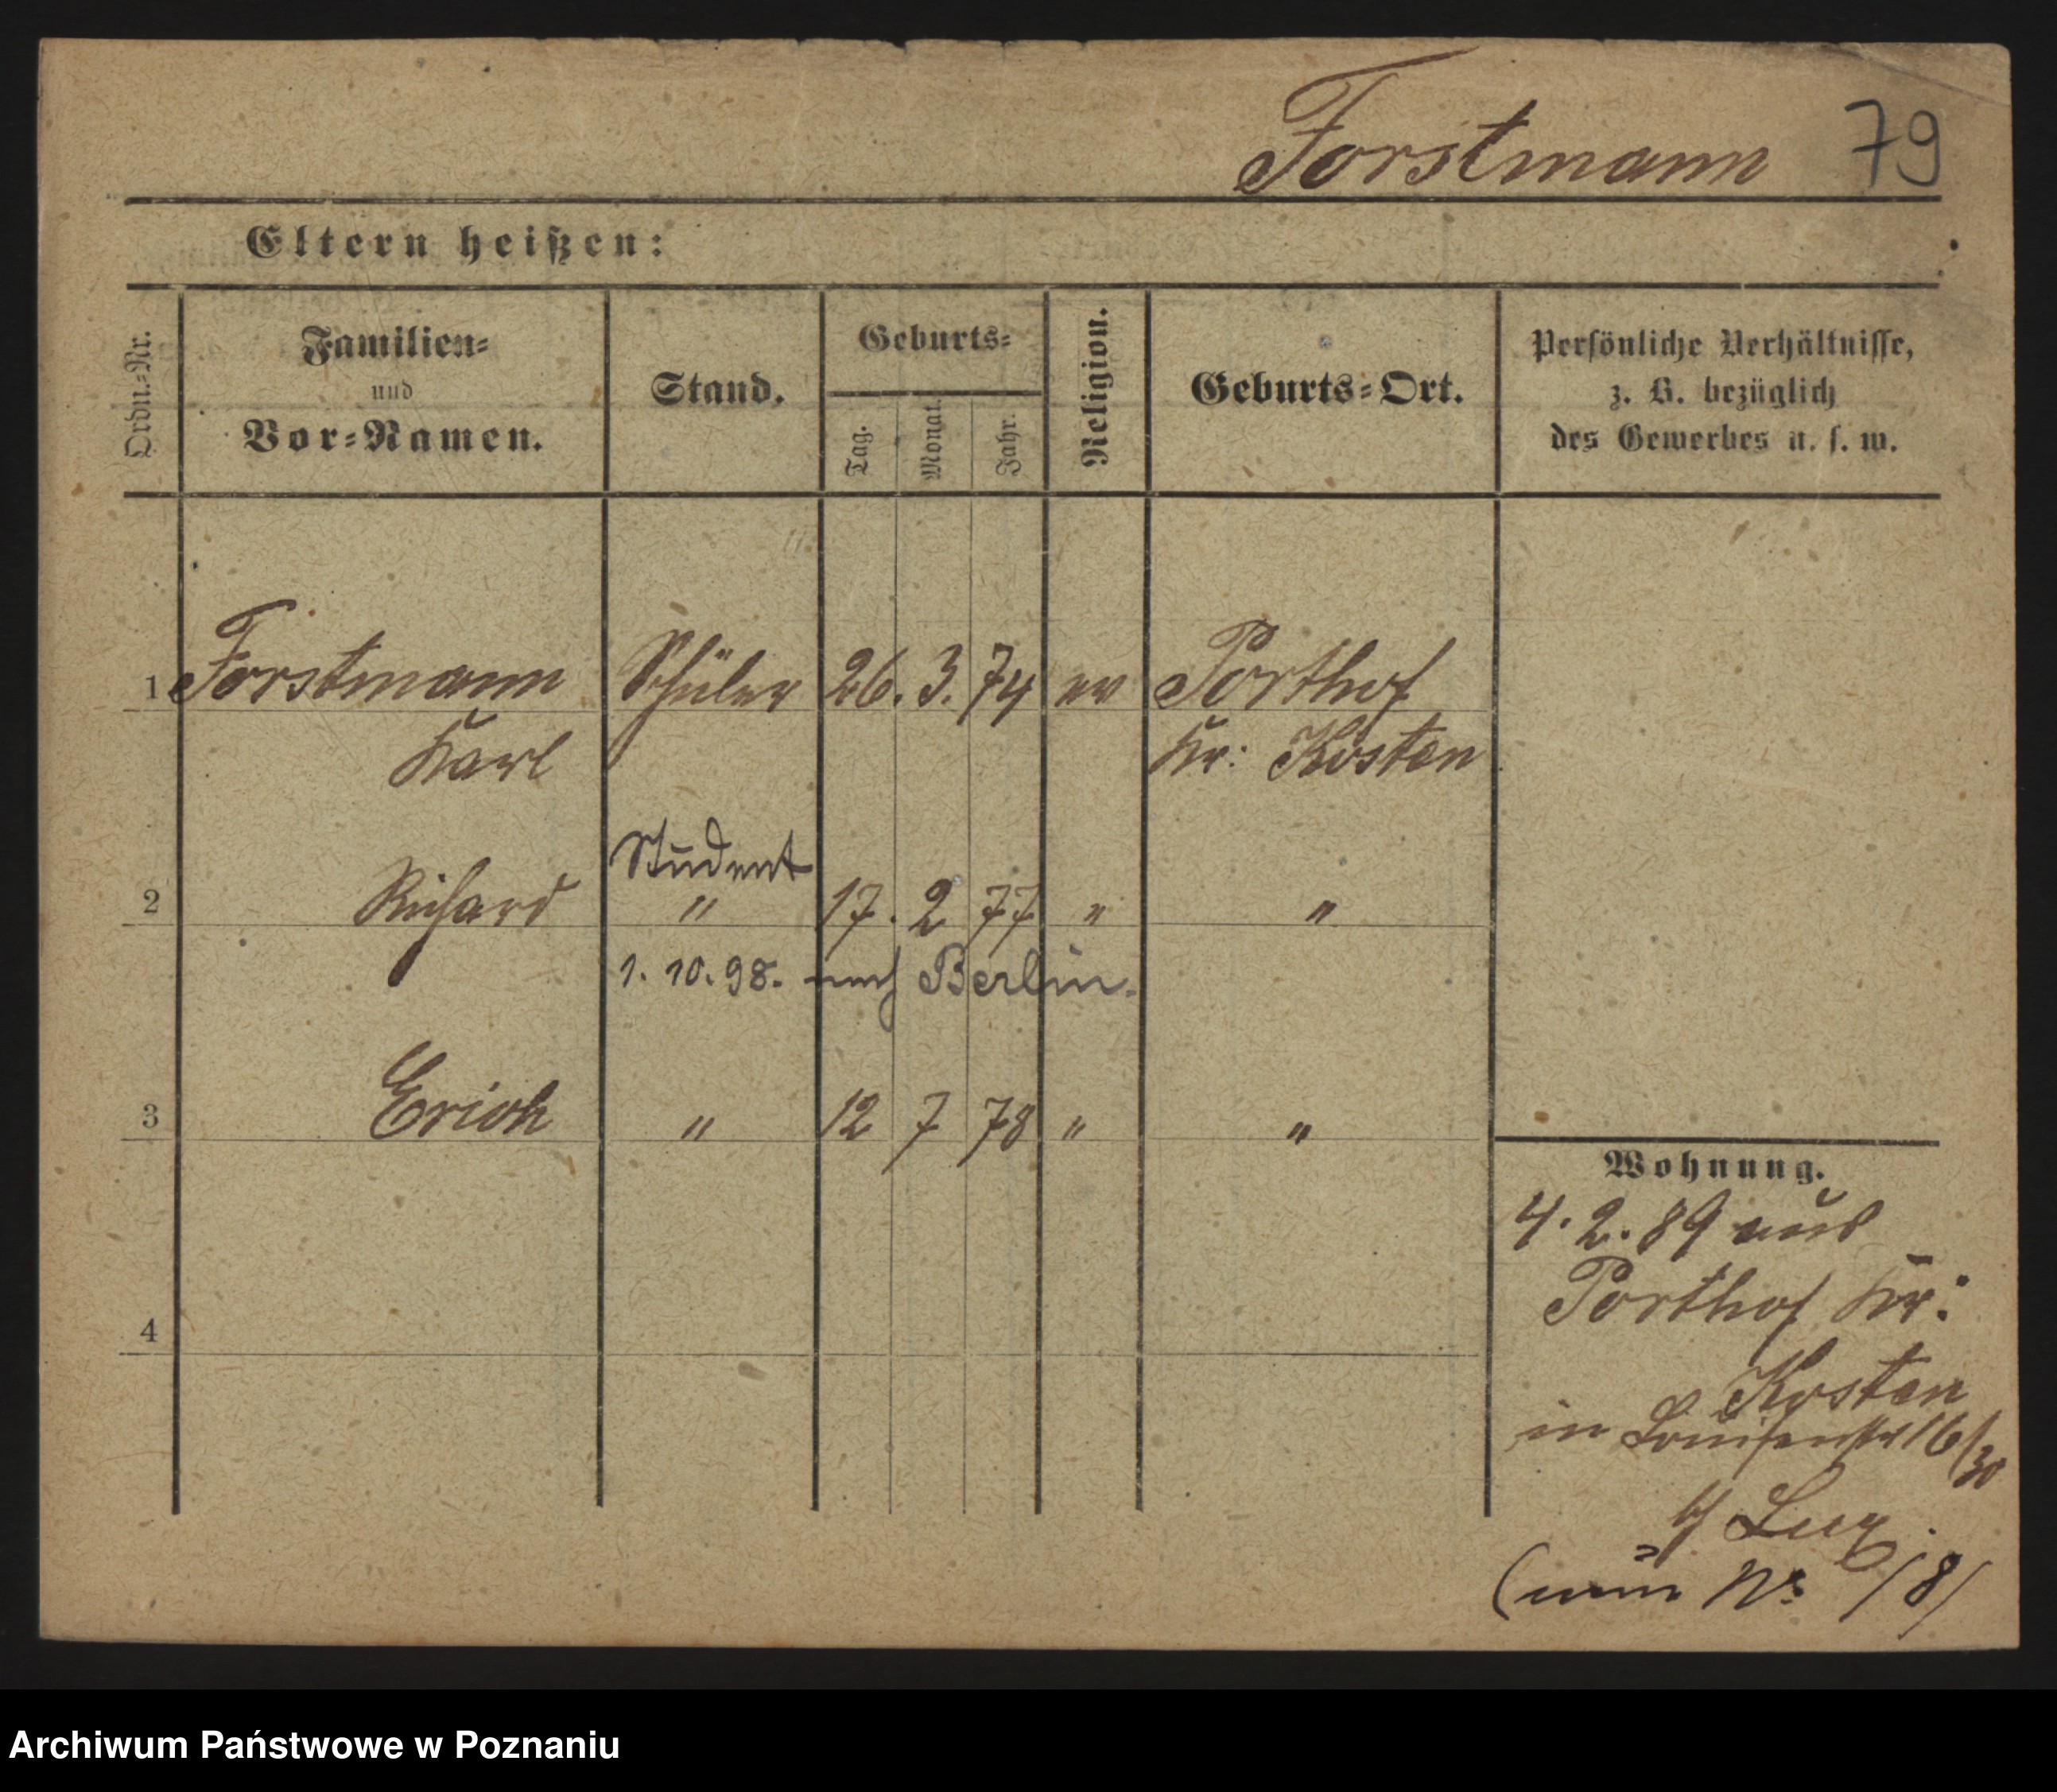 Forstmann 79
Eltern heißen:
Ordn.-Nr.
Familien-
und
Vor-Namen.
Stand.
Geburts-
Tag.
Monat.
Jahr.
Religion.
Geburts-Ort.
Persönliche Verhältnisse,
z. B. bezüglich
des Gewerbes u. s. w.
1 Forstmann Schüler 26. 3. 74 ev Porthof
Karl Kr: Kosten
Student
2 Richard " 17. 2 77 " "
1. 10. 98. nach Berlin.
3 Erich " 12 7 78 " "
4
Wohnung.
4. 2. 89 aus
Porthof Kr:
Kosten
in Louisenstr 16/30
b/ Lux
(nun No 18)
Archiwum Państwowe w Poznaniu